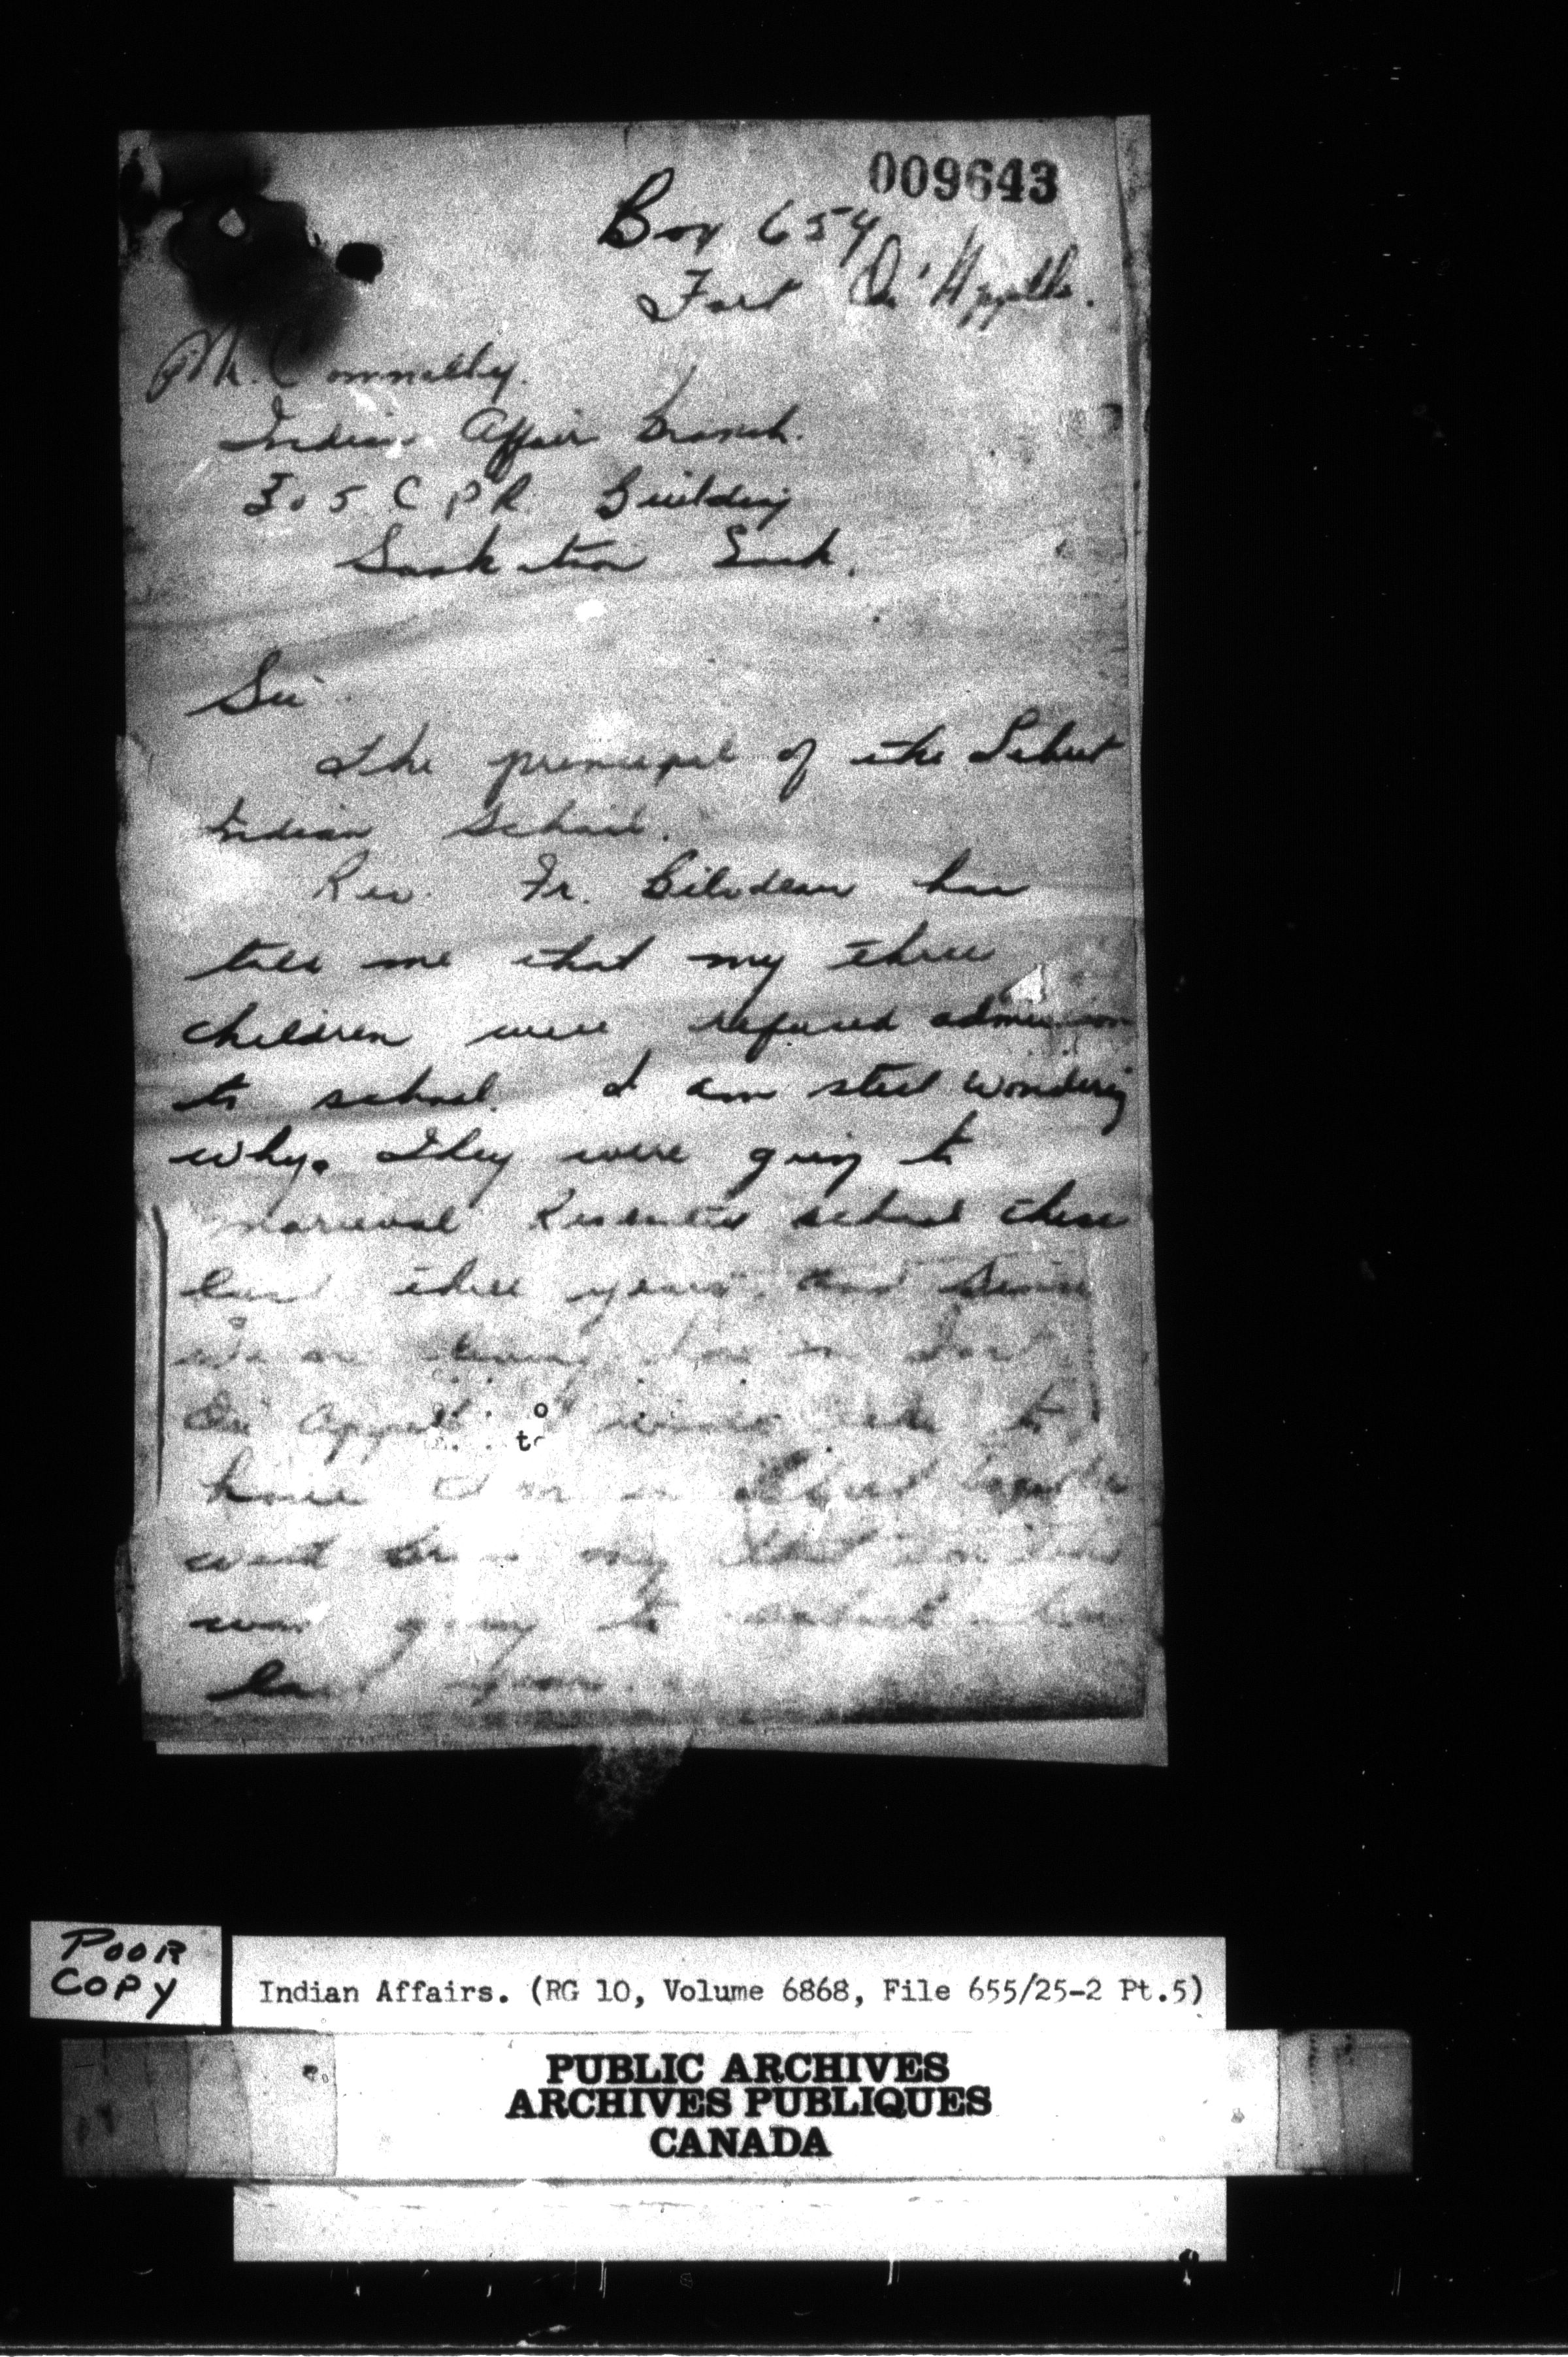 009643
Box 654
Fort Qu'Appelle.
Mr. Connelly.
Indian Affair Branch.
305 C P R. Building
Saskatoon Sask.
Sir
The principal of the Lebret
Indian School.
Rev. Fr. Bilodeau has
told me that my three
children were refused admission
to school. I am still wondering
why. They were going to
Marieval Residential school these
last three years. And since
we are living here in Fort
Qu'Appelle. I would like to
have them in Lebret
my
was going to
last year.
POOR
COPY
Indian Affairs. (RG 10, Volume 6868, File 655/25-2 Pt.5)
PUBLIC ARCHIVES
ARCHIVES PUBLIQUES
CANADA